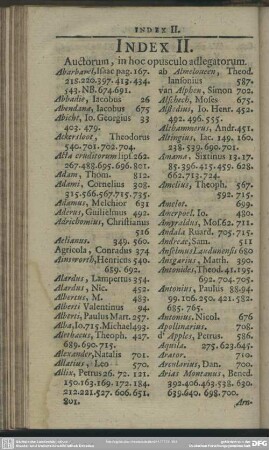 INDEX II.
INDEX II.
Auctorum, in hoc opusculo adlegatorum.
Abarbanel, Isaac pag. 167.
218. 220. 397. 413. 434.
543. NB. 674. 691.
Abbadie, Iacobus 26
Abendana, Iacobus 675
Abicht, Io. Georgius 33
403. 479.
Ackersloot, Theodorus
540. 701. 702. 704.
Acta eruditorum lipf. 262.
267. 488. 695. 696. 801.
Adam, Thom. 812.
Adami, Cornelius 308.
315. 566. 567. 715. 735.
Adamus, Melchior 631
Aderus, Guilielmus 492
Adrichomius, Christianus
516
Aelianus 349. 560.
Agricola, Conradus 374
Ainsworth, Henricus 540.
659. 692.
Alardus, Lampertus 354.
Alardus, Nic. 452.
Albertus, M. 483.
Alberti Valentinus 94.
Alberti, Paulus Mart. 257.
Alba, Io. 715. Michael 493.
Alethaeus, Theoph. 427.
689. 690. 715.
Alexander, Natalis 701.
Allatius, Leo 570.
Allix, Petrus 26. 72. 121.
150. 163. 169. 172. 184.
212. 221. 527. 606. 651.
801.
ab Almeloveen, Theod.
Iansonius 587.
van Alphen, Simon 702.
Alschech, Moses 675.
Alstedius, Io. Henr. 452.
492. 496. 555.
Althammerus, Andr. 451.
Altingius, Iac. 149. 160.
238. 539. 690. 701.
Amama, Sixtinus 13. 17.
85. 396. 415. 459. 628.
662. 713. 724.
Amelius, Theoph. 567.
592. 715.
Amelot. 699.
Amerpoel. Io. 480.
Amyraldus, Mos. 62. 711.
Andala Ruard. 705. 715.
Andreae, Sam. 511
Anselmus Laudunensis 680
Ansgarius, Matth. 390.
Antonides, Theod. 41. 195.
692. 704. 705.
Antonius, Paulus 88-94.
99. 106. 250. 421. 582.
685. 765.
Antonius, Nicol. 676
Apollinarius. 708.
d' Apples, Petrus. 586.
Aquila. 275. 623. 641.
Arator. 710.
Arcularius, Dan. 700.
Arias Montanus, Bened.
392. 406. 463. 538. 630.
639. 640. 698. 700.
Arn-